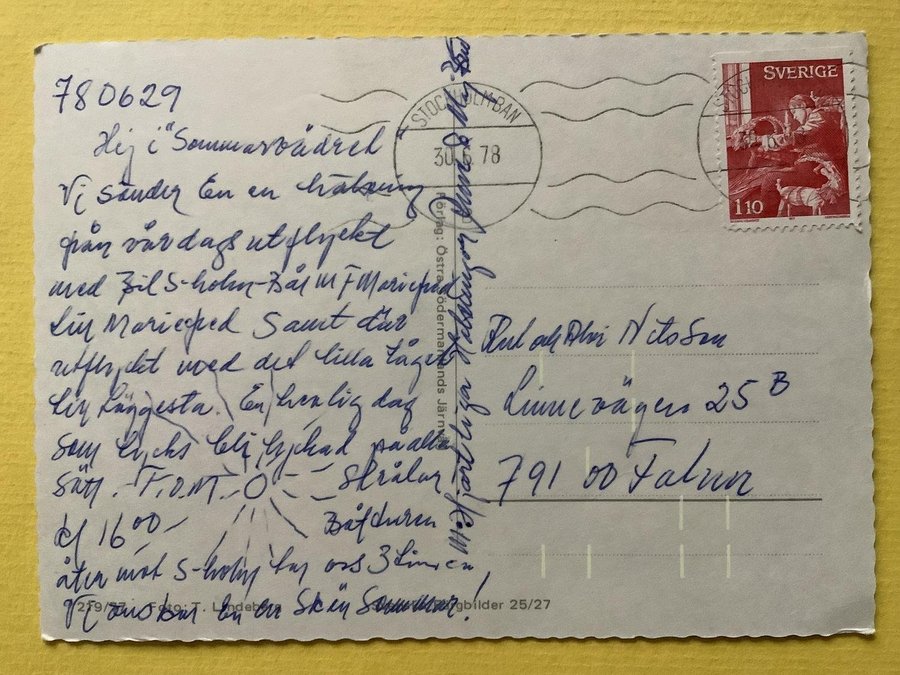 780629
Hej i "Sommarvädret
Vi sänder En en hälsning
från vår dags utflyckt
med Bil S-holm-Båt M F Mariefred
Till Mariefred Samt där
utflyckt med det lilla tåget
till Läggesta. En härlig dag
som tycks bli lyckad på alla
sätt. F.O.M. Strålar
kl 16 00 Båtturen
åter mot S-holm tar oss 3 Timmar,
Vi önskar En en Skön Sommar!
Hjärtliga Hälsningar
STOCKHOLM BAN
30.6.78
SVERIGE
1 10
Nilsson
Linnevägen 25 B
791 00 Falun
Förlag: Östra Södermanlands Järnväg
219/77 Foto: T. Lindeberg
Färgbilder 25/27